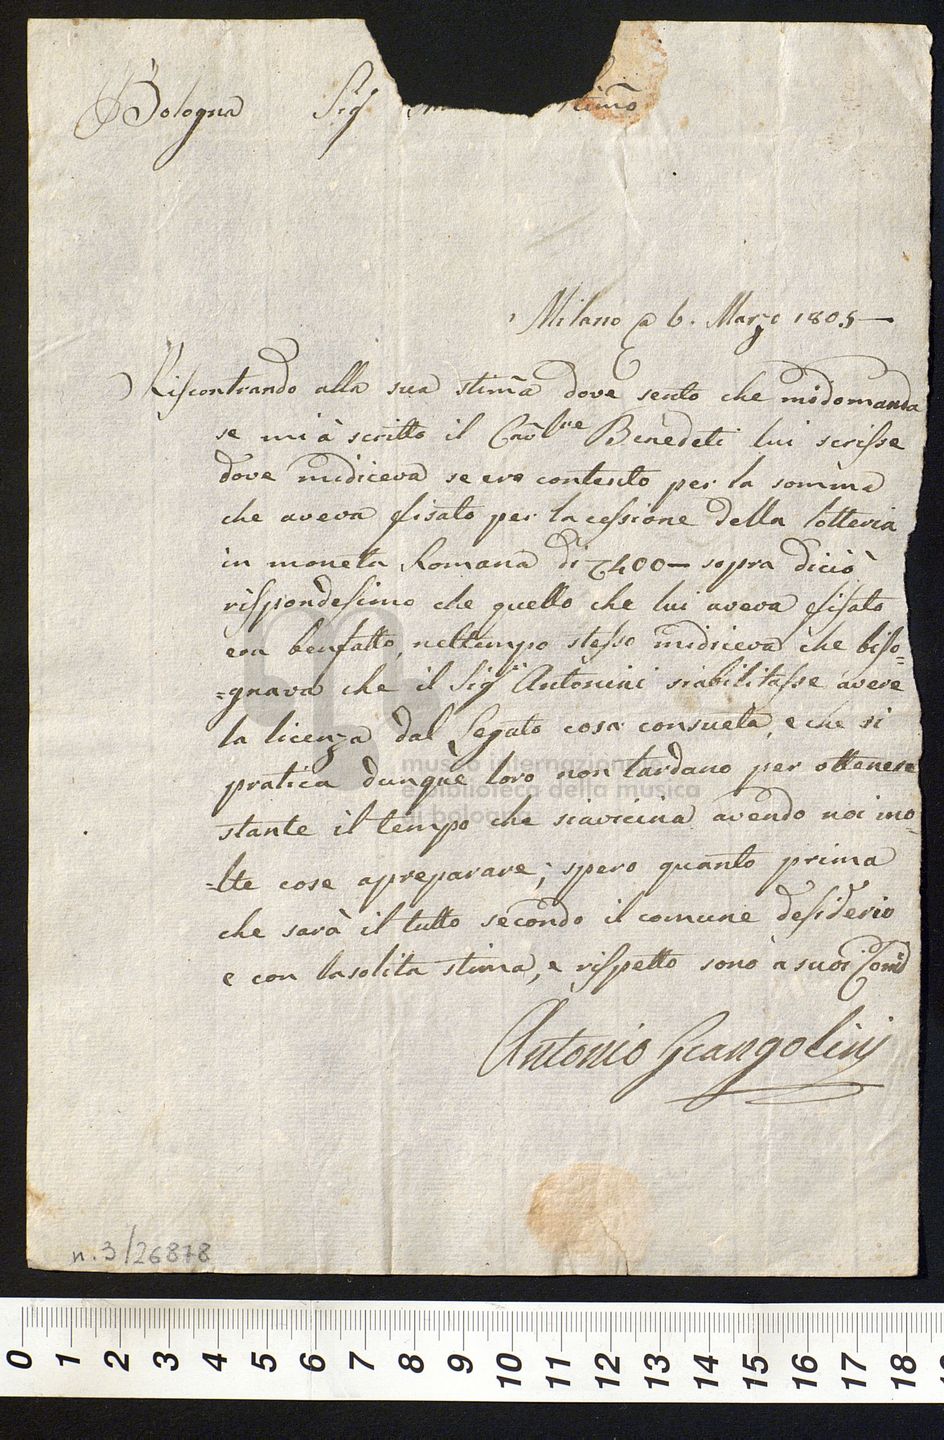 Bologna Sig.
Milano a 6. Marzo 1805
Riscontrando alla sua stim̃a dove sento che midomanda
se mi à scritto il Benedeti lui scrisse
dove midiceva se ero contento per la somma
che aveva fisato per lacessione della lotteria
in moneta Romana di 400 — sopra diciò
rispondesimo che quello che lui aveva fisato
era benfatto, neltempo stesso midiceva che biso=
=gnava che il Sig.r Antonini siabilitasse avere
la licenza dal Legato cosa consueta, e che si
pratica dunque loro non tardano per ottenere
stante il tempo che siavicina avendo noi mo=
=lte cose apreparare; spero quanto prima
che sarà il tutto secondo il comune desiderio
e con lasolita stima, e rispetto sono a suoi Comd
Antonio Gcangolini
n. 3/26878
museo internazionale
e biblioteca della musica
di bologna
0 1 2 3 4 5 6 7 8 9 10 11 12 13 14 15 16 17 18